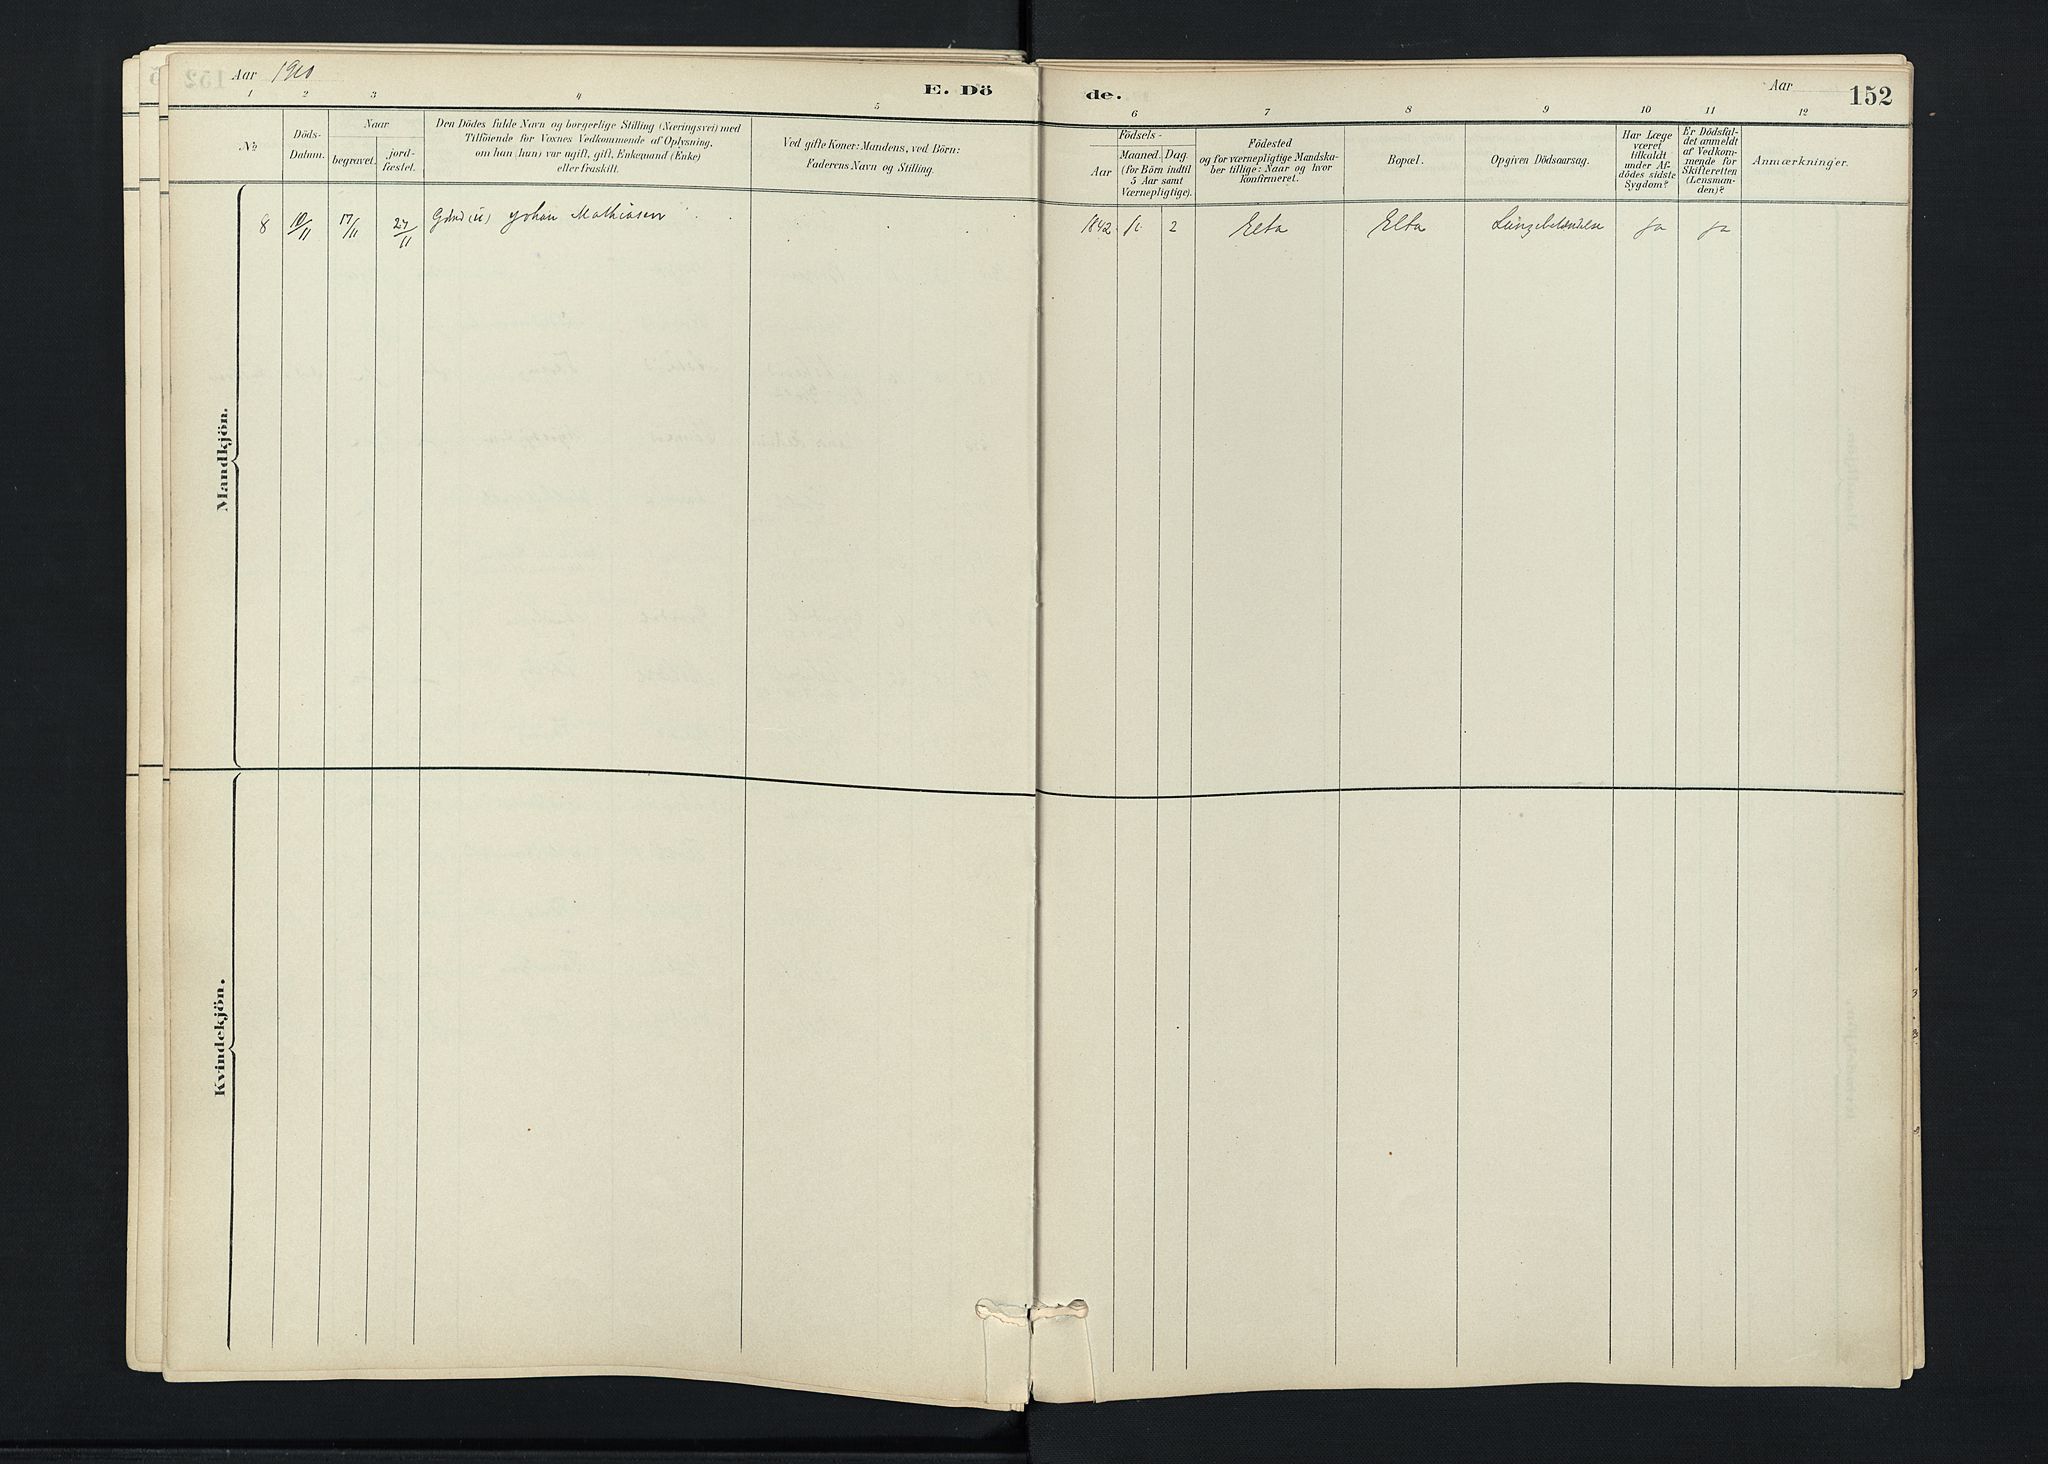 Aar 1910
E. Döde.
Aar
152
1 2 3 4 5 6 7 8 9 10 11 12
No
Döds-
Datum.
Naar
begravet.
jord-
fæstet.
Den Dödes fulde Navn og borgerlige Stilling (Næringsvei) med
Tilföiende for Voxnes Vedkommende af Oplysning,
om han (hun) var ugift, gift, Enkemand (Enke)
eller fraskilt.
Ved gifte Koner: Mandens, ved Börn:
Faderens Navn og Stilling.
Födsels-
Aar
Maaned. Dag.
(for Börn indtil
5 Aar samt
Værnepligtige).
Födested
og for værnepligtige Mandska-
ber tillige: Naar og hvor
konfirmeret.
Bopæl.
Opgiven Dödsaarsag.
Har Læge
været
tilkaldt
under Af-
dödes sidste
Sygdom?
Er Dödsfal-
det anmeldt
af Vedkom-
mende for
Skifteretten
(Lensman-
den)?
Anmærkninger.
8 10/11 17/11 27/11 Gdmd (u) Johan Mathiasen 1842 2 Elta Elta Lungebetændelse ja ja
Mandkjön.
Kvindekjön.